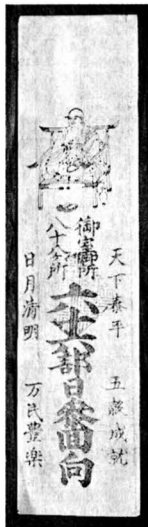 天下泰平 五穀成就
御室御所
八十八ヶ所
六十六部日参回向
日月清明 万民豊楽